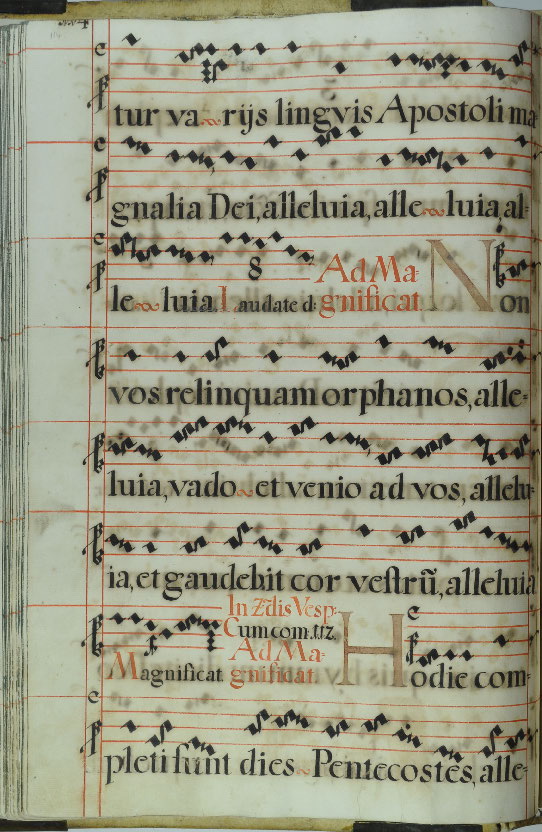 tur va rijs lingvis Apostoli ma
gnalia Dei, alleluia, alle luia, al-
8 Ad Ma-
le luia. Laudate d: gnificat Non
vos relinquam orphanos, alle-
luia, vado et venio ad vos, allelu-
ia, et gaudebit cor vestrũ, alleluia
In 2dis Vesp:
Cum com. ttz.
Ad Ma-
Magnificat gnificat Hodie com-
pleti sunt dies Pentecostes, alle-